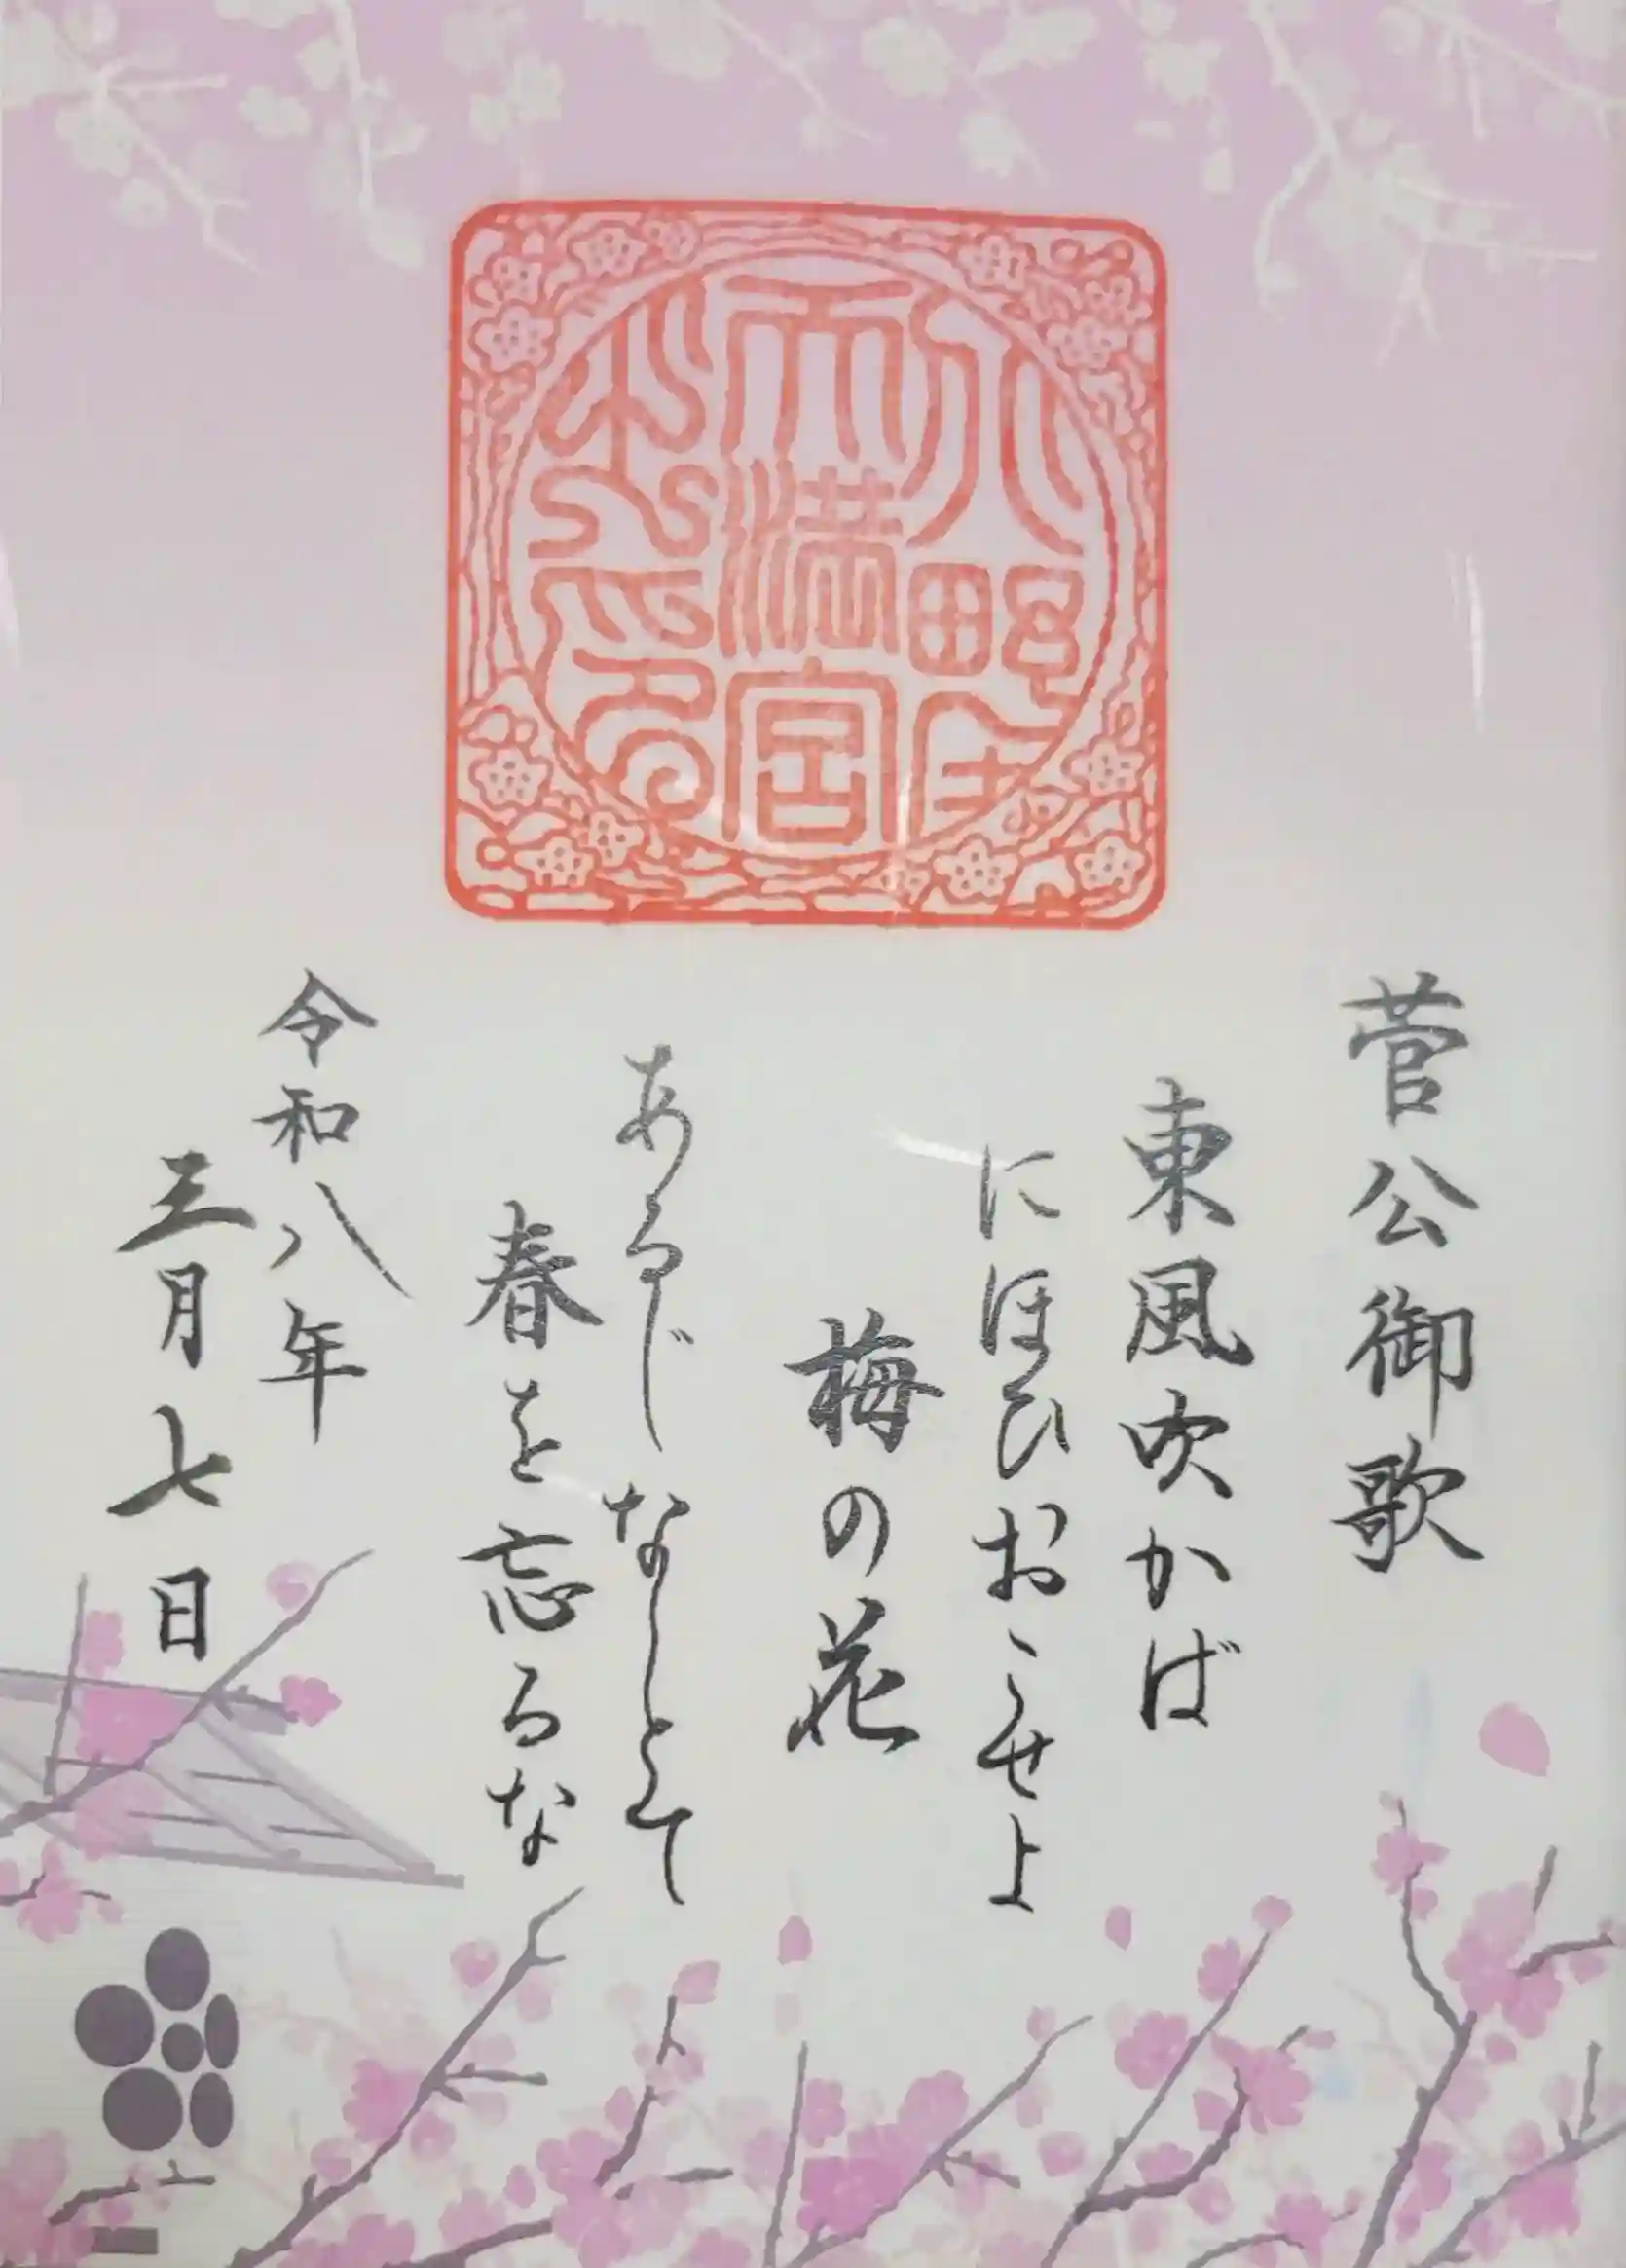 天満宮
菅公御歌
東風吹かば
にほひおこせよ
梅の花
あるじなしとて
春を忘るな
令和八年
三月七日